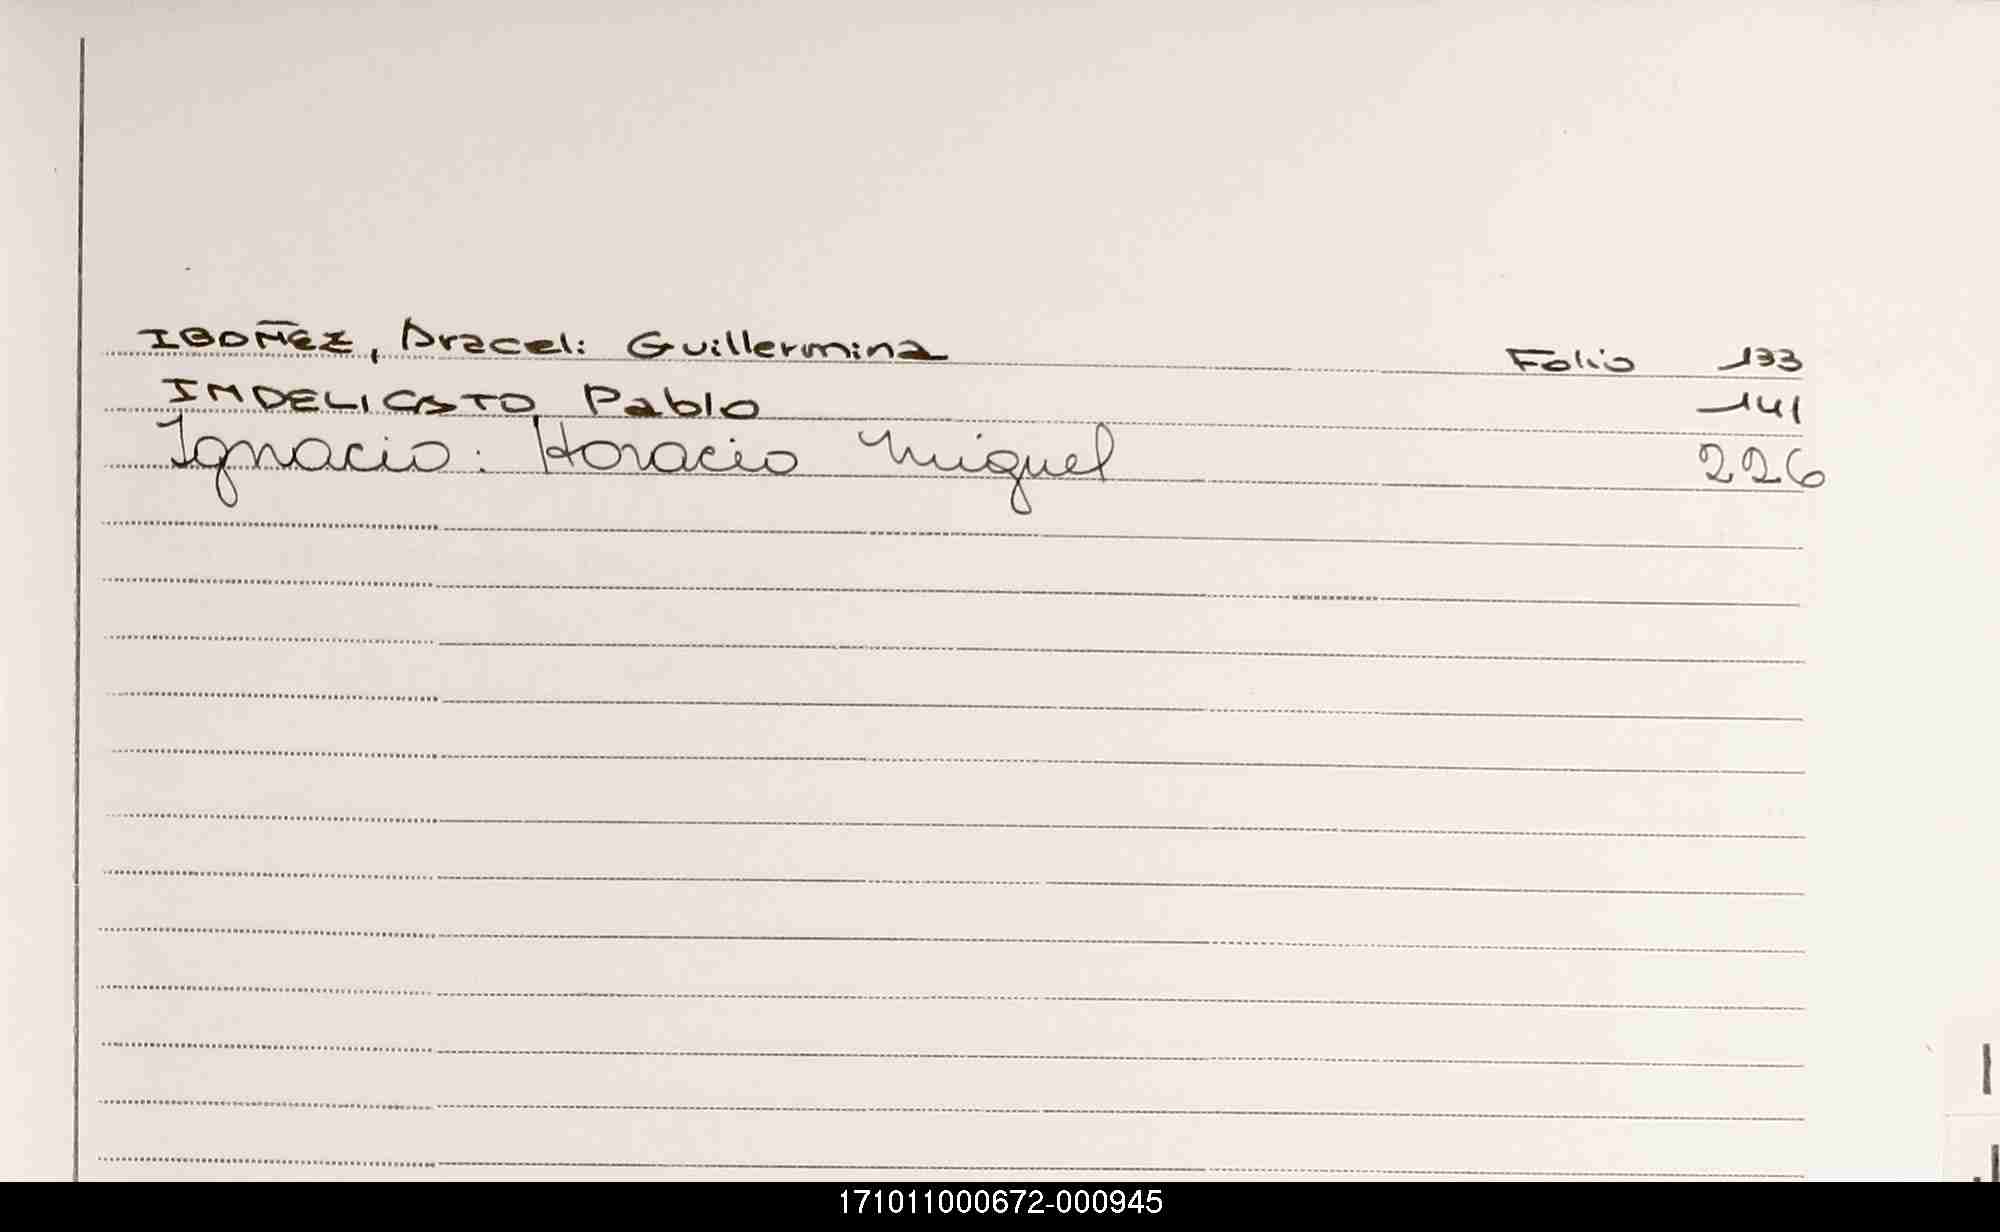 IBAÑEZ, Araceli Guillermina Folio 133
INDELICATO Pablo 141
Ignacio: Horacio Miguel 226
I
J
171011000672-000945